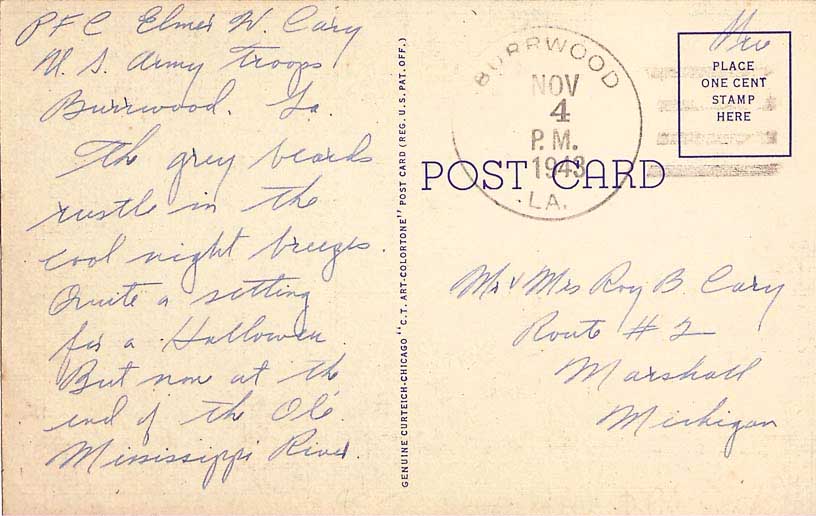 PFC Elmer W. Cary
U. S. Army Troops
Burrwood. La.
The grey beards
rustle in the
cool night breezes.
Quite a setting
for a Hallowen.
But none at the
end of the Ole
Mississippi River.
GENUINE CURTEICH-CHICAGO "C.T. ART-COLORTONE" POST CARD (REG. U.S. PAT. OFF.)
BURRWOOD
NOV
4
P.M.
1943
LA.
POST CARD
Free
PLACE
ONE CENT
STAMP
HERE
Mr & Mrs Roy B. Cary
Route # 2
Marshall
Michigan